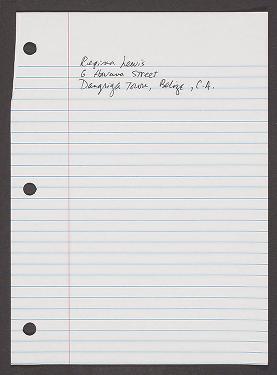 Regina Lewis
6 Havana Street
Dangriga Town, Belize, C.A.